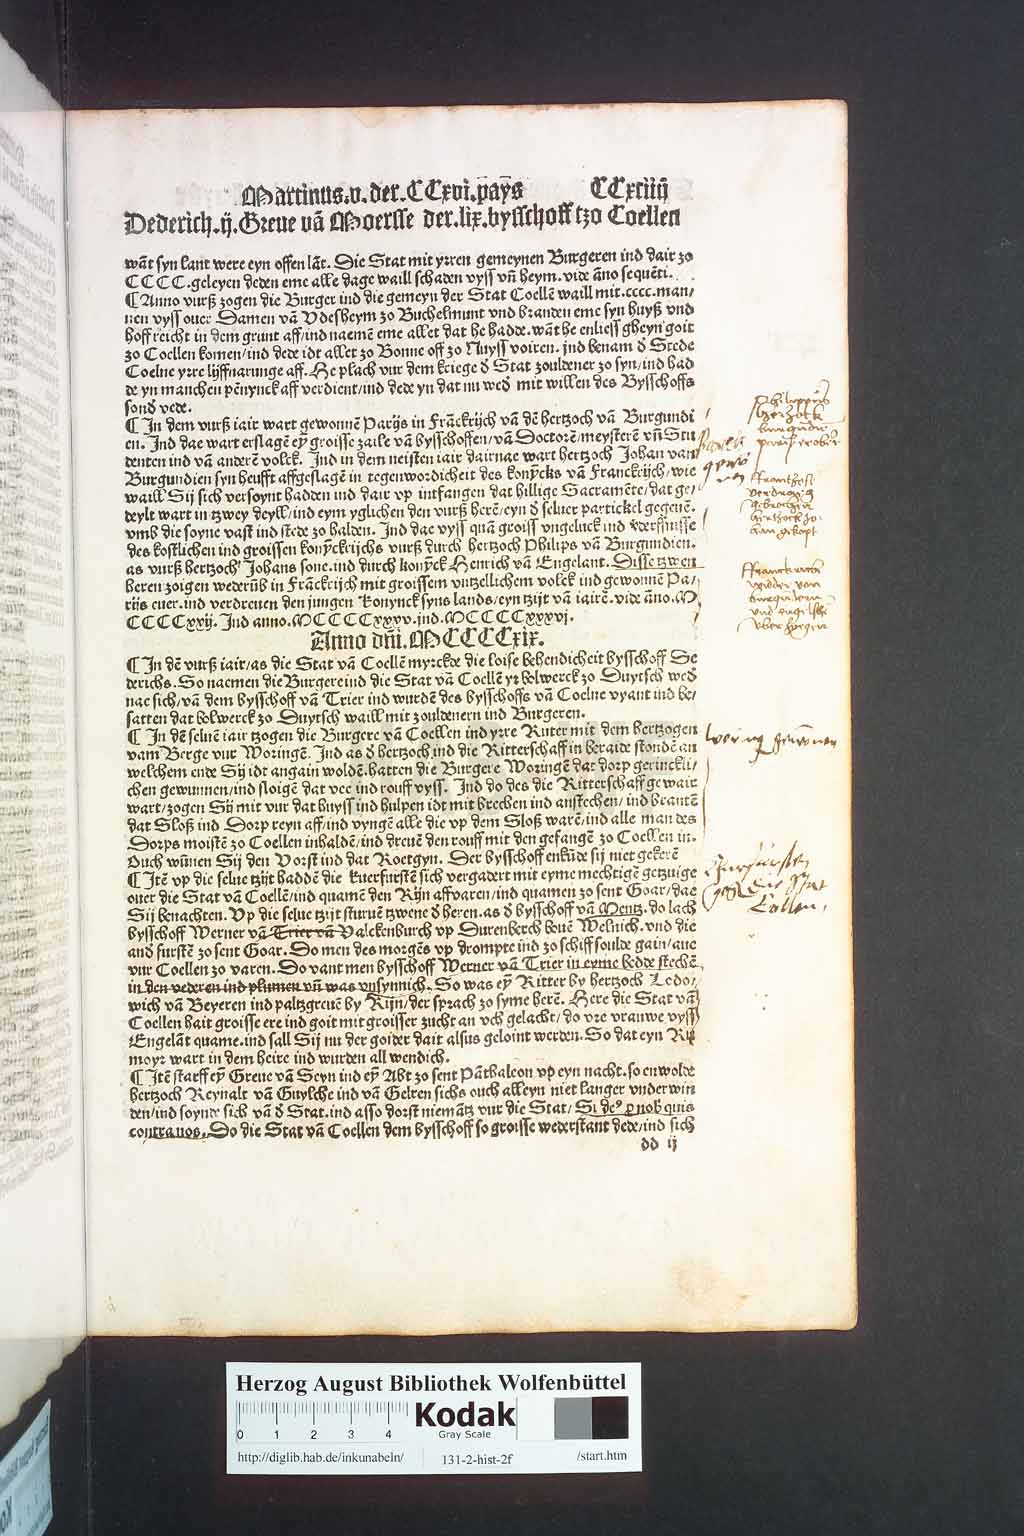 Martinus.v. der.CCxvi.pays CCxciiij
Dederich.ij.Greue vā Moersse der.lix.bysschoff tzo Coellen
wāt syn lant were eyn offen lāt. Die Stat mit yrren gemeynen Burgeren ind dair zo
CCCC.geleyen deden eme alle dage waill schaden vyss vn̄ heym.vide āno sequēti.
¶ Anno vurß zogen die Burger ind die gemeyn der Stat Coellē waill mit.cccc.man/
nen vyss ouer Damen vā Vdesheym zo Buchelmunt vnd branden eme syn huyß vnd
hoff reicht in dem grunt aff/ind naemē eme allet dat he hadde.wāt he enliess gheyn goit
zo Coellen komen/ind dede idt allet zo Bonne off zo Nuyss voiren. jnd benam đ Stede
Coelne yrre lijffnarunge aff. He plach vur dem kriege đ Stat zouldener zo syn/ind had
de yn manchen pēnynck aff verdient/ind dede yn dat nu weđ mit willen des Bysschoffs
sonđ vede.
¶ In dem vurß iair wart gewonnē Parijs in Frāckrijch vā dē hertzoch vā Burgundi
en. Ind dae wart erslagē eȳ groisse zaile vā bysschoffen/vā Doctorē/meysterē vn̄ Stu
denten ind vā anderē volck. Ind in dem neisten iair dairnae wart hertzoch Johan van
Burgundien syn heufft affgeslagē in tegenwordicheit des konȳcks vā Franckrijch/wie
waill Sij sich versoynt hadden ind dair vp intfangen dat hillige Sacramēte/dat ge/
deylt wart in tzwey deyll/ind eym yglichen den vurß herē/eyn đ seluer partickel gegeuē.
vmb die soyne vast ind stede zo halden. Ind dae vyss quā groiss vngeluck ind verstnisse
des kostlichen ind groissen konȳckrijchs vurß durch hertzoch Philips vā Burgundien.
as vurß hertzoch Johans sone.ind durch konȳck Henrich vā Engelant. Disse tzwen
heren zoigen wederūb in Franckrijch mit groissem vntzellichem volck ind gewonnē Pa/
rijs euer.ind verdreuen den jungen konynck syns lands/eyn tzijt vā iairē.vide āno.M
CCCCxxij. Ind anno.MCCCCxxxv.jnd.MCCCCxxxvj.
Anno dn̄i.MCCCCxix.
¶ In dē vurß iair/as die Stat vā Coellē myrckde die loise behendicheit bysschoff De
derichs. So naemen die Burgere ind die Stat vā Coellē yr bolwerck zo Duytsch weđ
nae sich/vā dem bysschoff vā Trier ind wurdē des bysschoffs vā Coelne vyant ind be/
satten dat bolwerck zo Duytsch waill mit zouldenern ind Burgeren.
¶ In dē seluē iair tzogen die Burgere vā Coellen ind yrre Ruter mit dem hertzogen
vam Berge vur Woringē. Ind as đ hertzoch ind die Ritterschaff in beraide stondē an
welchem ende Sij idt angain woldē.hatten die Burgere Woringē dat dorp gerinckli/
chen gewunnen/ind sloigē dat vee ind rouff vyss. Ind do des die Ritterschaff gewair
wart/zogen Sij mit vur dat huyss ind hulpen idt mit brechen ind anstechen/ind brantē
dat Sloß ind Dorp reyn aff/ind vyngē alle die vp dem Sloß warē/ind alle man des
Dorps moistē zo Coellen inhaldē/ind dreuē den rouff mit den gefangē zo Coellen in.
Ouch wūnen Sij den Vorst ind dat Roetgyn. Der bysschoff enkūde sij niet gekerē
¶ Itē vp die selue tzijt haddē die kuerfurstē sich vergadert mit eyme mechtigē getzuige
ouer die Stat vā Coellē/ind quamē den Rijn affvaren/ind quamen zo sent Goar/dae
Sij benachten. Vp die selue tzijt sturuē tzwene đ heren.as đ bysschoff vā Mentz.do lach
bysschoff Werner vā Trier vā Valckenburch vp Durenberch bouē Welnich.vnd die
and furstē zo sent Goar. Do men des morgēs vp drompte ind zo schiff soulde gain/aue
vur Coellen zo varen. Do vant men bysschoff Werner vā Trier in eyme bedde stechē
in den vederen ind plumen vn̄ was vnsynnich. So was eȳ Ritter by hertzoch Lodo/
wich vā Beyeren ind paltzgreuē by Rijn/der sprach zo syme herē. Here die Stat vā
Coellen hait groisse ere ind goit mit groisser zucht an vch gelacht/do vre vrauwe vyss
Engelāt quame.ind sall Sij nu der goider dait alsus geloint werden. So dat eyn Ru
moyr wart in dem heire ind wurden all wendich.
¶ Itē starff eȳ Greue vā Seyn ind eȳ Abt zo sent Pāthaleon vp eyn nacht.so enwolde
hertzoch Reynalt vā Guylche ind vā Gelren sichs ouch alleyn niet langer vnderwin
den/ind soynde sich vā đ Stat.ind asso dorst niemātz vur die Stat/ Si deꝰ ꝓ nob quis
contra nos. Do die Stat vā Coellen dem bysschoff so groisse wederstant dede/ind sich
dd ij
Philippus
hertzock
burgundi
pariss erobert
Franckrich
wedder von
burgundien
und engelsche
uberzogen
woring gewonnen
Churfursten
die Stat
Collen.
Herzog August Bibliothek Wolfenbüttel
0 1 2 3 4
Kodak
Gray Scale
http://diglib.hab.de/inkunabeln/ 131-2-hist-2f /start.htm